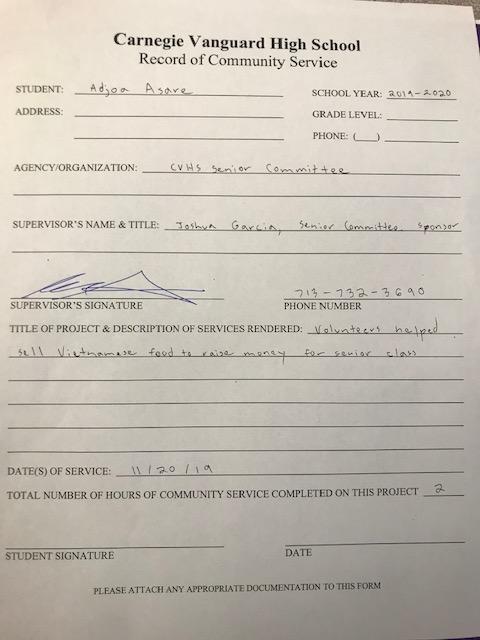 Carnegie Vanguard High School
Record of Community Service
STUDENT: Adjoa Asare
SCHOOL YEAR: 2019-2020
ADDRESS:
GRADE LEVEL:
PHONE: ( )
AGENCY/ORGANIZATION: CVHS Senior Committee
SUPERVISOR'S NAME & TITLE: Joshua Garcia, Senior Committee sponsor
713-732-3690
SUPERVISOR'S SIGNATURE
PHONE NUMBER
TITLE OF PROJECT & DESCRIPTION OF SERVICES RENDERED: Volunteers helped
sell Vietnamese food to raise money for senior class
DATE(S) OF SERVICE: 11/20/19
TOTAL NUMBER OF HOURS OF COMMUNITY SERVICE COMPLETED ON THIS PROJECT 2
STUDENT SIGNATURE
DATE
PLEASE ATTACH ANY APPROPRIATE DOCUMENTATION TO THIS FORM